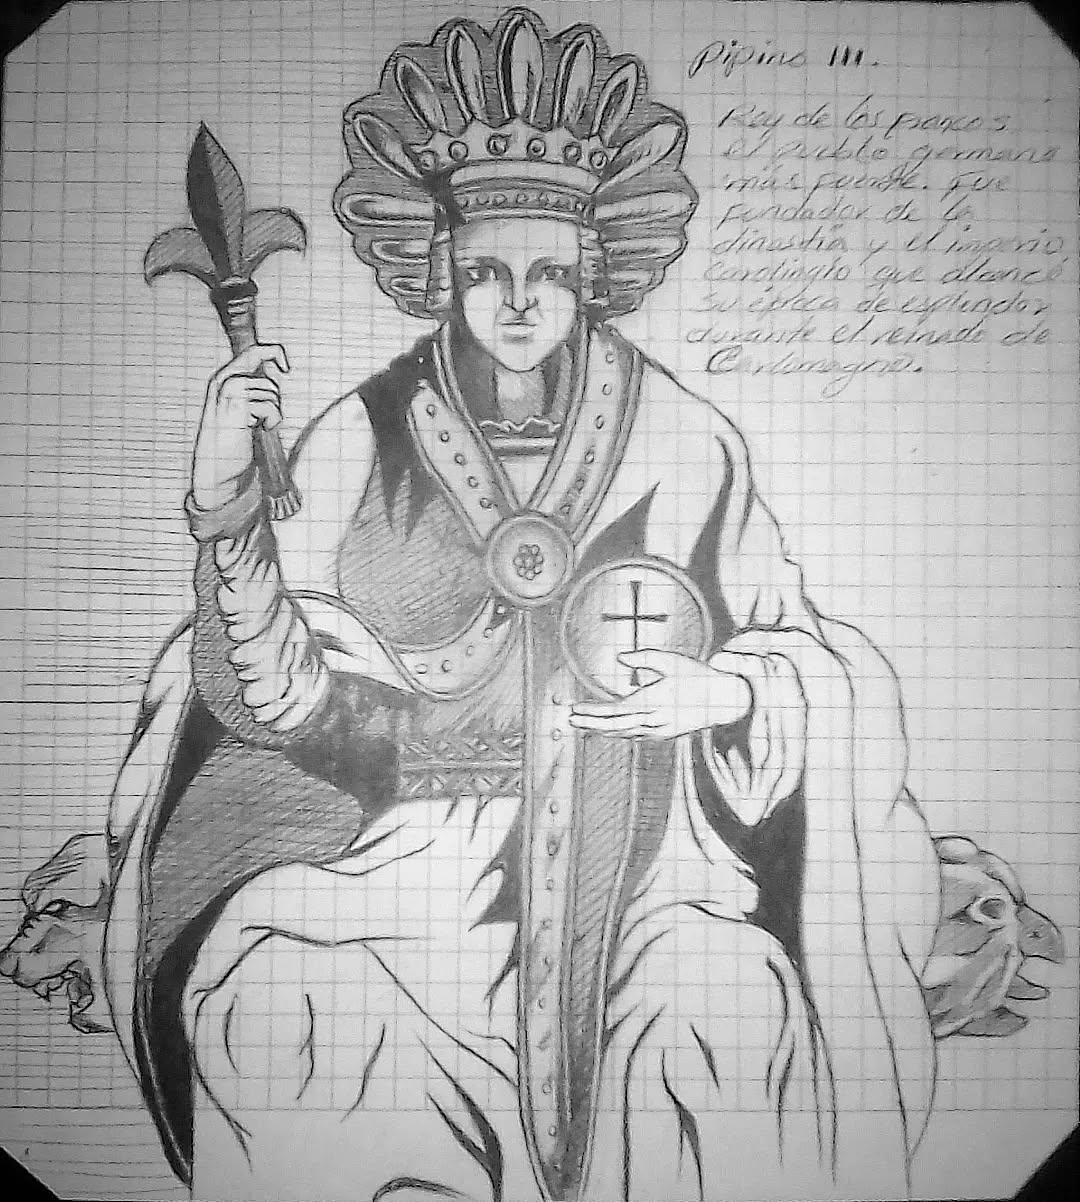 Pipino III.
Rey de los francos
el pueblo germano
más fuerte. Fue
fundador de la
dinastía y el imperio
carolingio que alcanzó
su época de esplendor
durante el reinado de
Carlomagno.